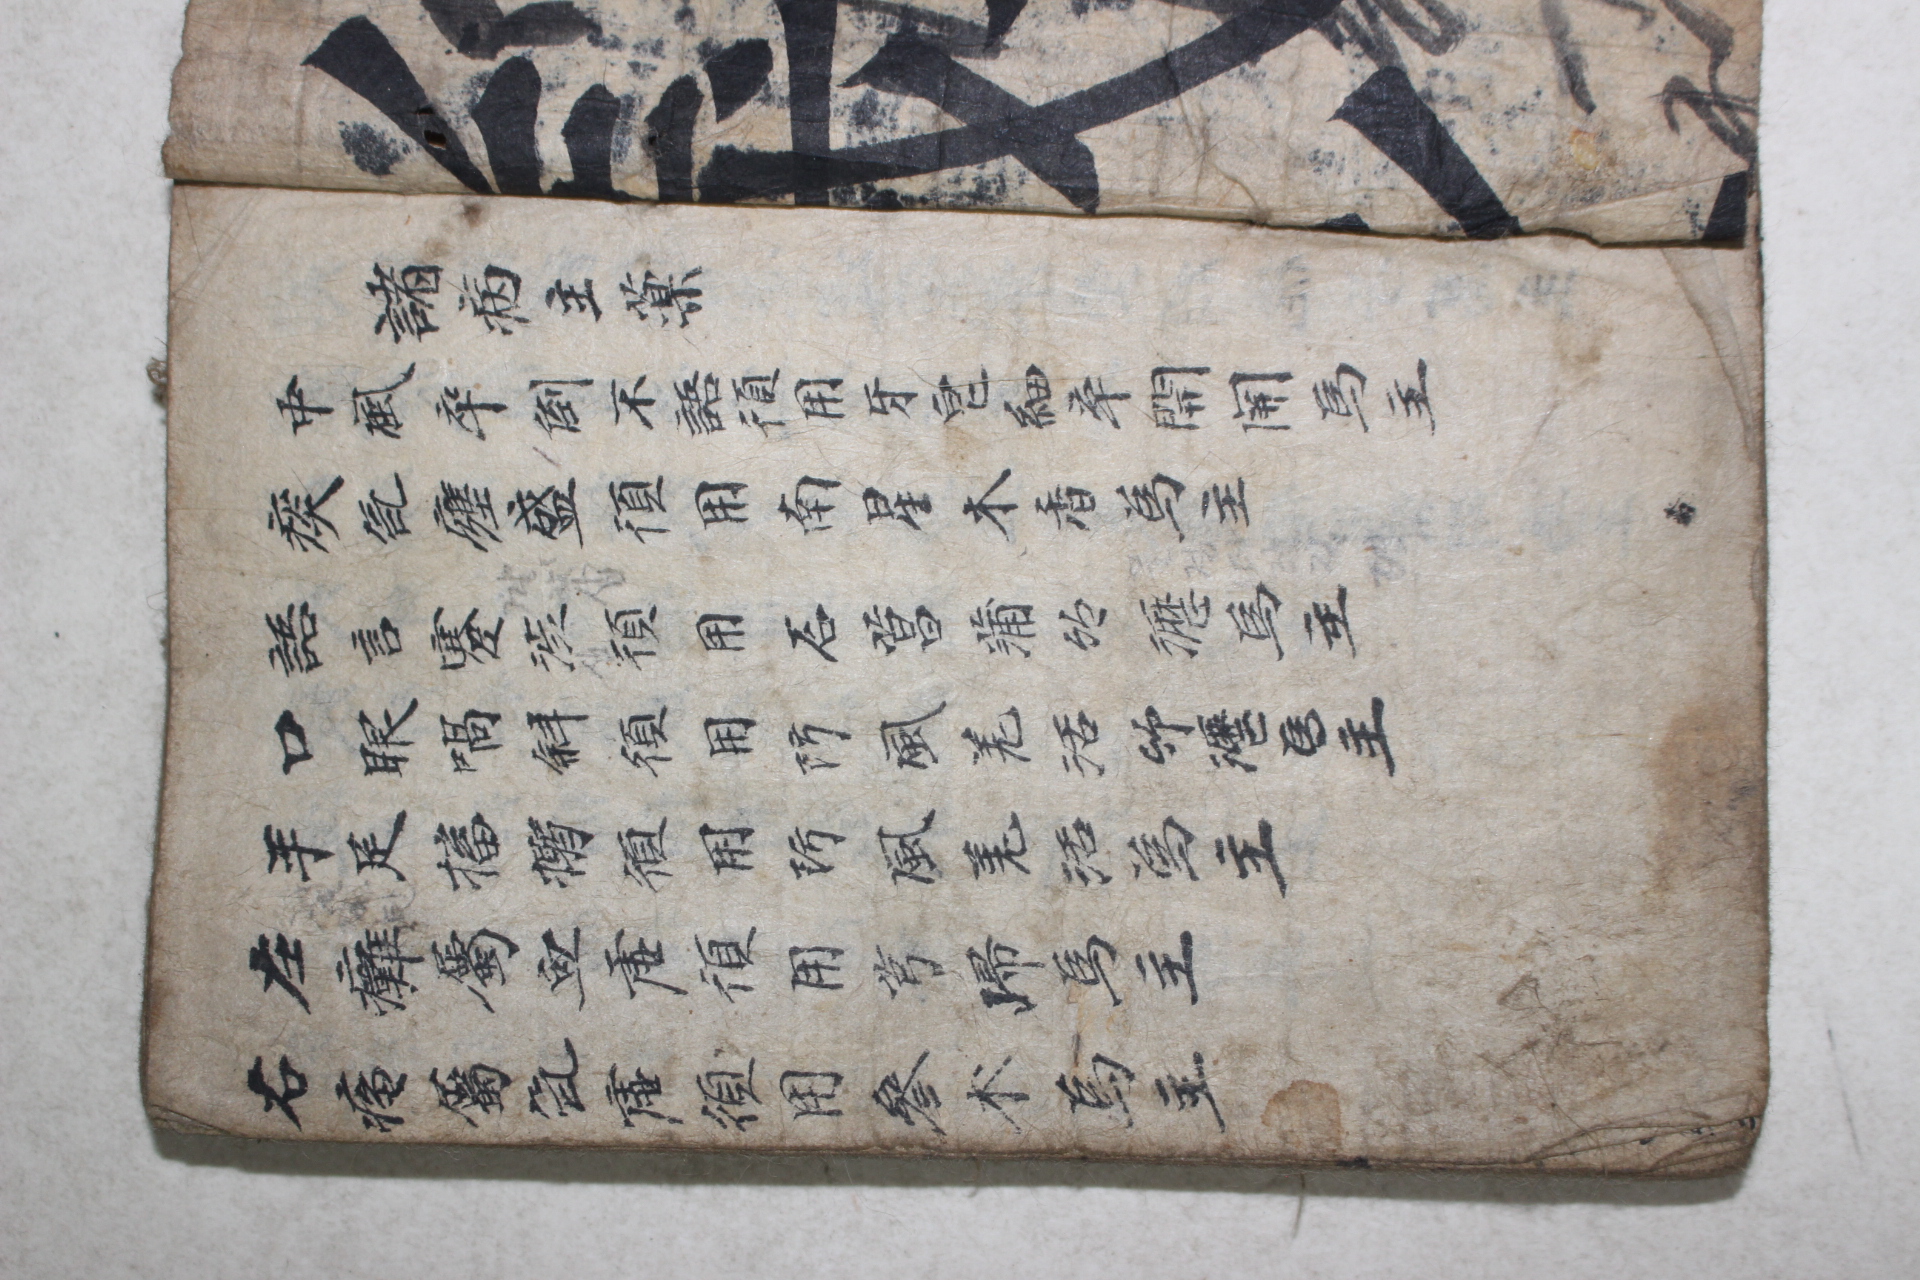 諸病主藥
中風卒倒不語須用牙皂細辛開開為主
痰氣壅盛須用南星木香為主
語言蹇澁須用石菖蒲竹瀝為主
口眼喎斜須用防風羌活竹瀝為主
手足搐搦須用防風羌活為主
左癱屬血虛須用芎歸為主
右痪屬氣虛須用參朮為主